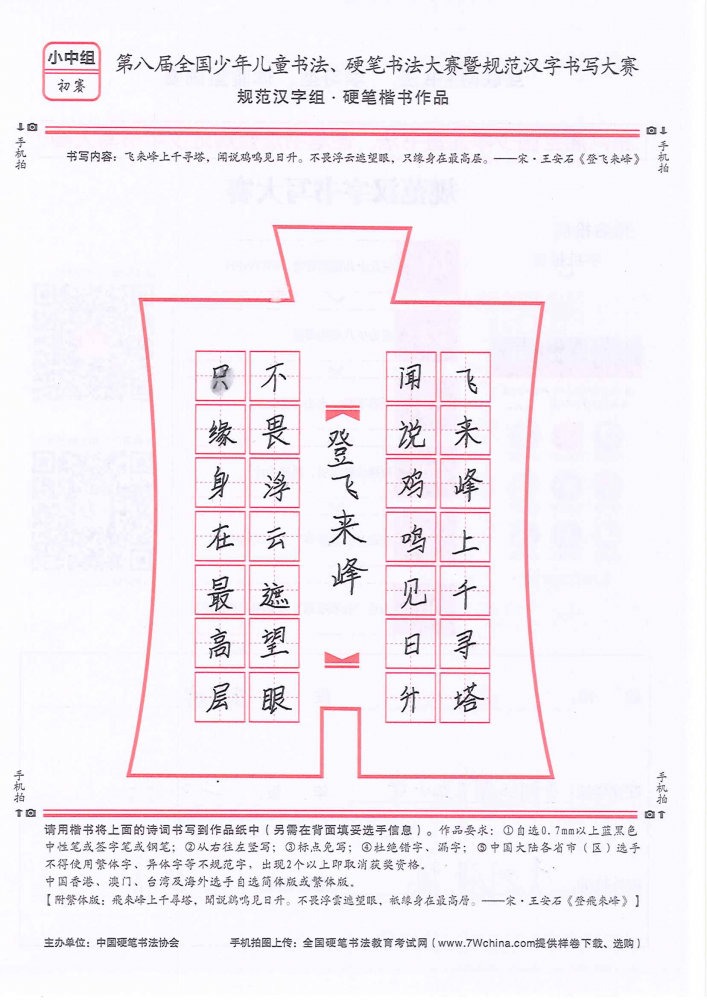 小中组
初赛
第八届全国少年儿童书法、硬笔书法大赛暨规范汉字书写大赛
规范汉字组·硬笔楷书作品
手机拍
手机拍
书写内容：飞来峰上千寻塔，闻说鸡鸣见日升。不畏浮云遮望眼，只缘身在最高层。——宋·王安石《登飞来峰》
飞来峰上千寻塔
闻说鸡鸣见日升
登飞来峰
不畏浮云遮望眼
只缘身在最高层
手机拍
手机拍
请用楷书将上面的诗词书写到作品纸中（另需在背面填妥选手信息）。作品要求：①自选0.7mm以上蓝黑色
中性笔或签字笔或钢笔；②从右往左竖写；③标点免写；④杜绝错字、漏字；⑤中国大陆各省市（区）选手
不得使用繁体字、异体字等不规范字，出现2个以上即取消获奖资格。
中国香港、澳门、台湾及海外选手自选简体版或繁体版。
【附繁体版：飛来峰上千尋塔，聞説鷄鳴見日升。不畏浮雲遮望眼，衹缘身在最高層。——宋·王安石《登飛来峰》】
主办单位：中国硬笔书法协会 手机拍图上传：全国硬笔书法教育考试网（www.7Wchina.com提供样卷下载、选购）